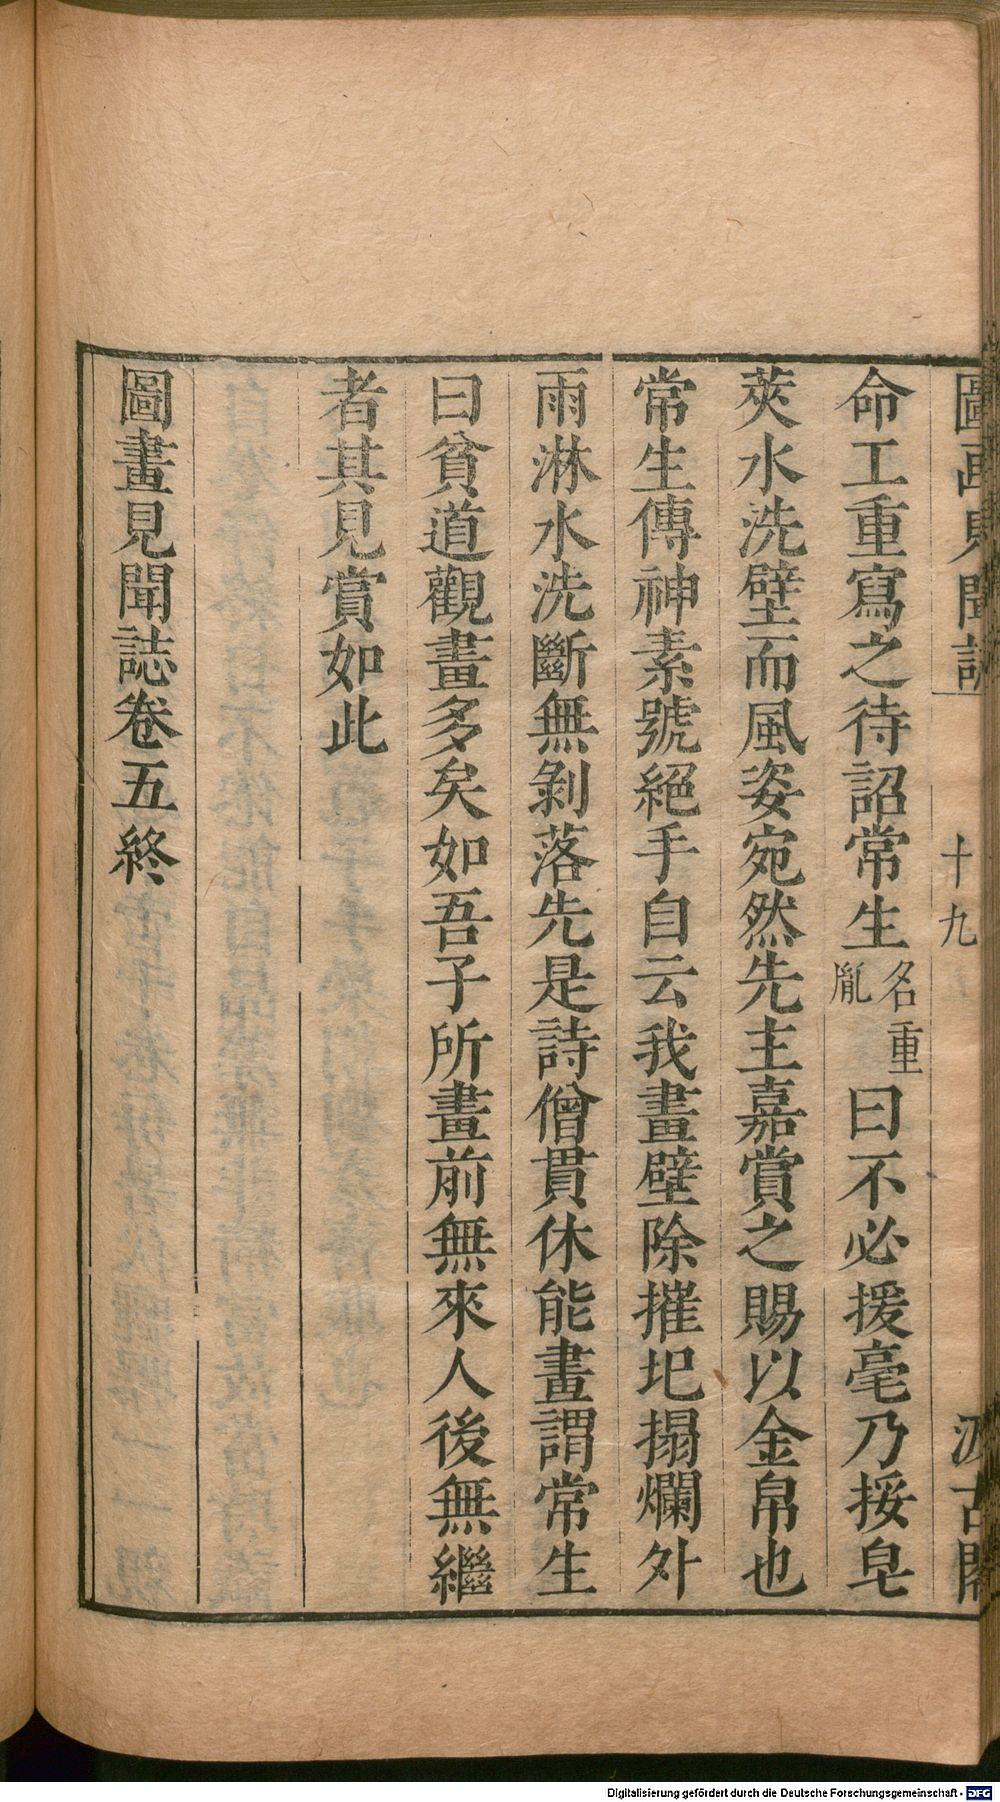 圖畫見聞誌
十九
汲古閣
命工重寫之待詔常生名重胤曰不必援毫乃挼皂
莢水洗壁而風姿宛然先主嘉賞之賜以金帛也
常生傳神素號絕手自云我畫壁除摧圯搨爛外
雨淋水洗斷無剝落先是詩僧貫休能畫謂常生
曰貧道觀畫多矣如吾子所畫前無來人後無繼
者其見賞如此
圖畫見聞誌卷五終
Digitalisierung gefördert durch die Deutsche Forschungsgemeinschaft - DFG